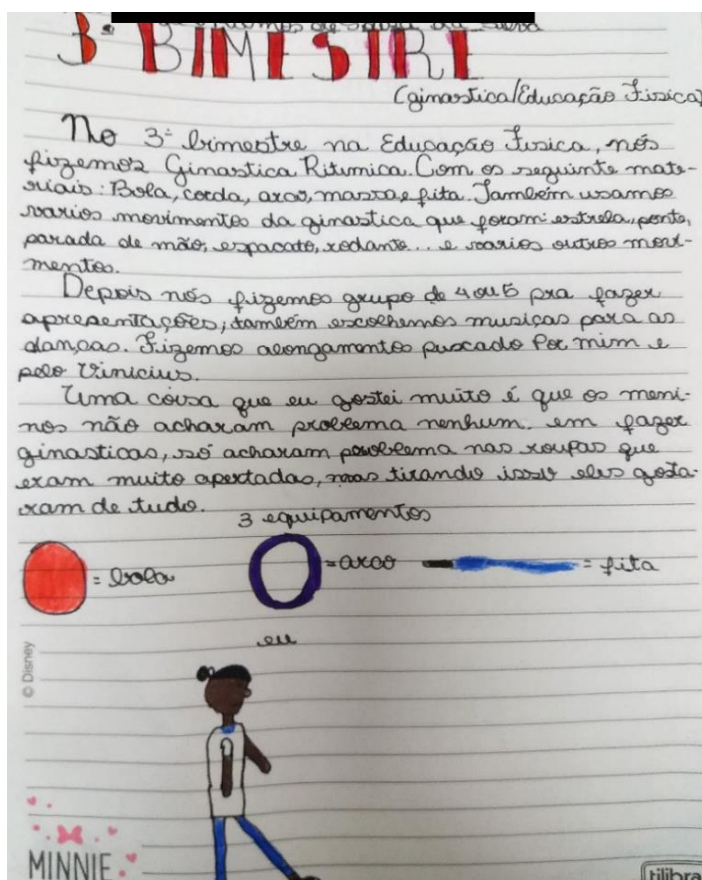 3º BIMESTRE
(ginastica/Educação Fisica)
No 3º bimestre na Educação Fisica, nós
fizemos Ginastica Ritimica. Com os seguinte mate-
riais: Bola, corda, arco, massa e fita. Também usamos
varios movimentos da ginastica que foram: estrela, ponte,
parada de mão, espacato, rodante... e varios outros movi-
mentos.
Depois nós fizemos grupo de 4 ou 5 pra fazer
apresentações, também escolhemos musicas para as
danças. Fizemos alongamentos puscado Por mim e
pelo Vinicius.
Uma coisa que eu gostei muito é que os meni-
nos não acharam problema nenhum em fazer
ginasticas, só acharam problema nas roupas que
eram muito apertadas, mas tirando isso eles gosta-
ram de tudo.
3 equipamentos
= bola
= arco
= fita
eu
© Disney
MINNIE
tilibra